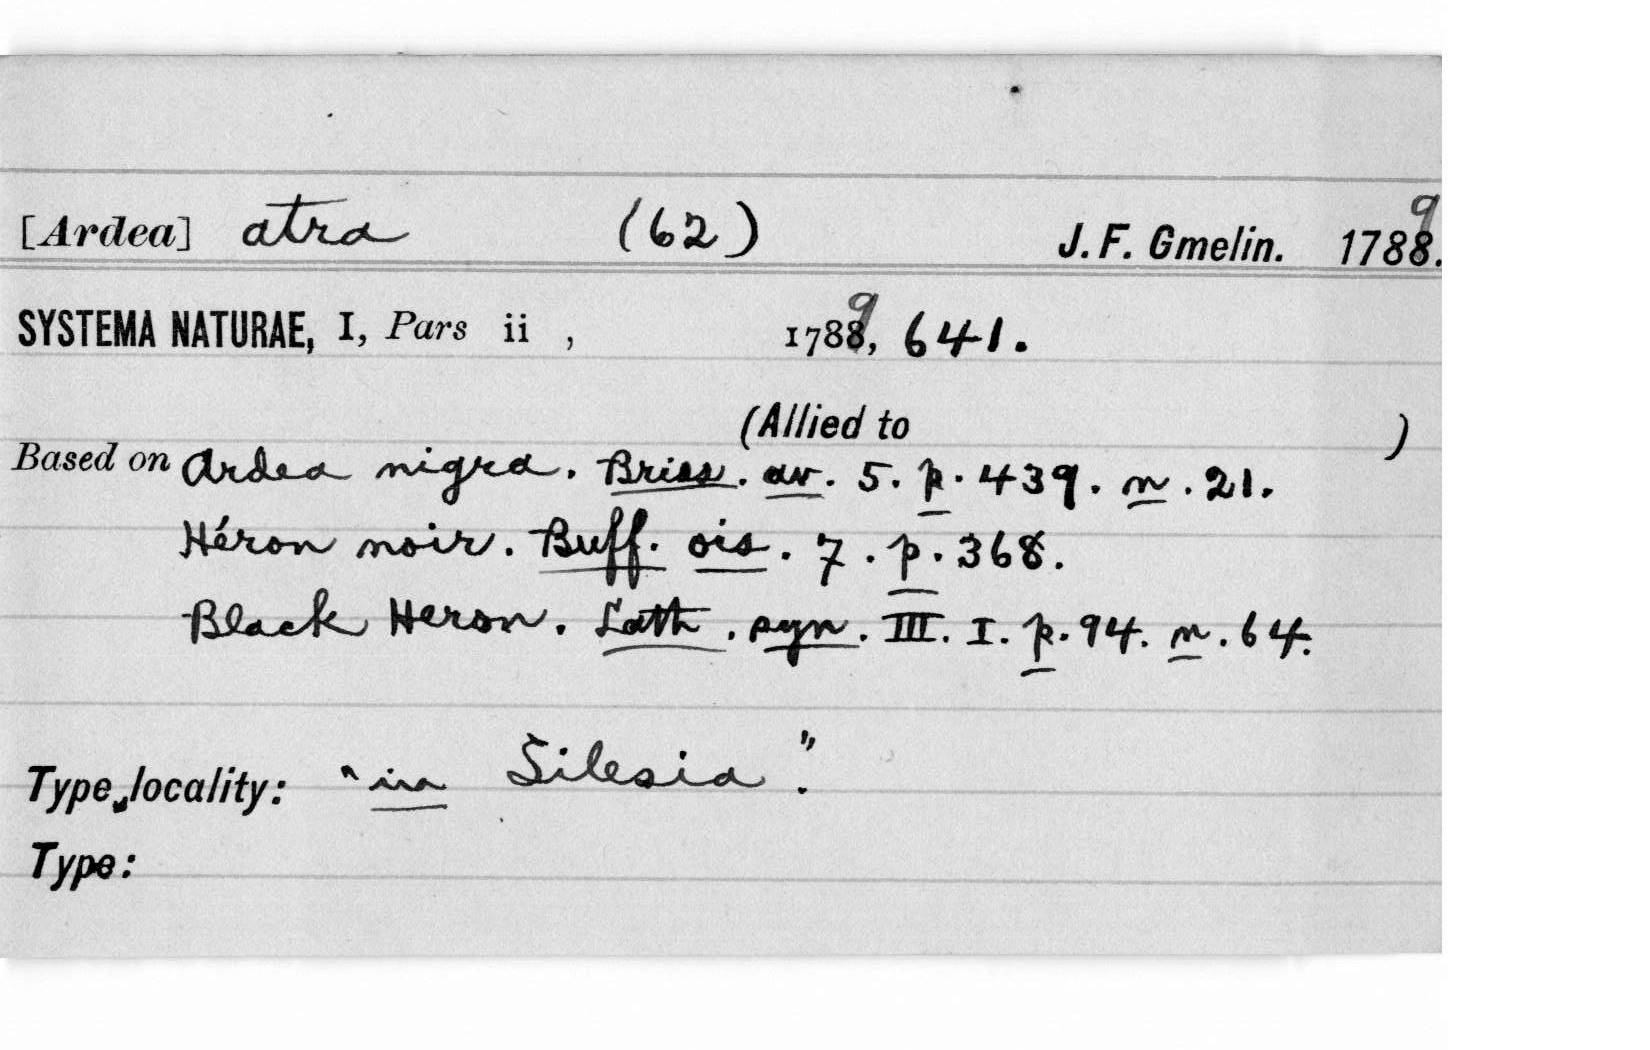 [Ardea] atra (62) J. F. Gmelin. 1789.
SYSTEMA NATURAE, I, Pars ii , 1789, 641.
(Allied to )
Based on Ardea nigra. Briss. av. 5. p. 439. n. 21.
Héron noir. Buff. ois. 7. p. 368.
Black Heron. Lath. syn. III. I. p. 94. n. 64.
Type locality: "in Silesia".
Type: